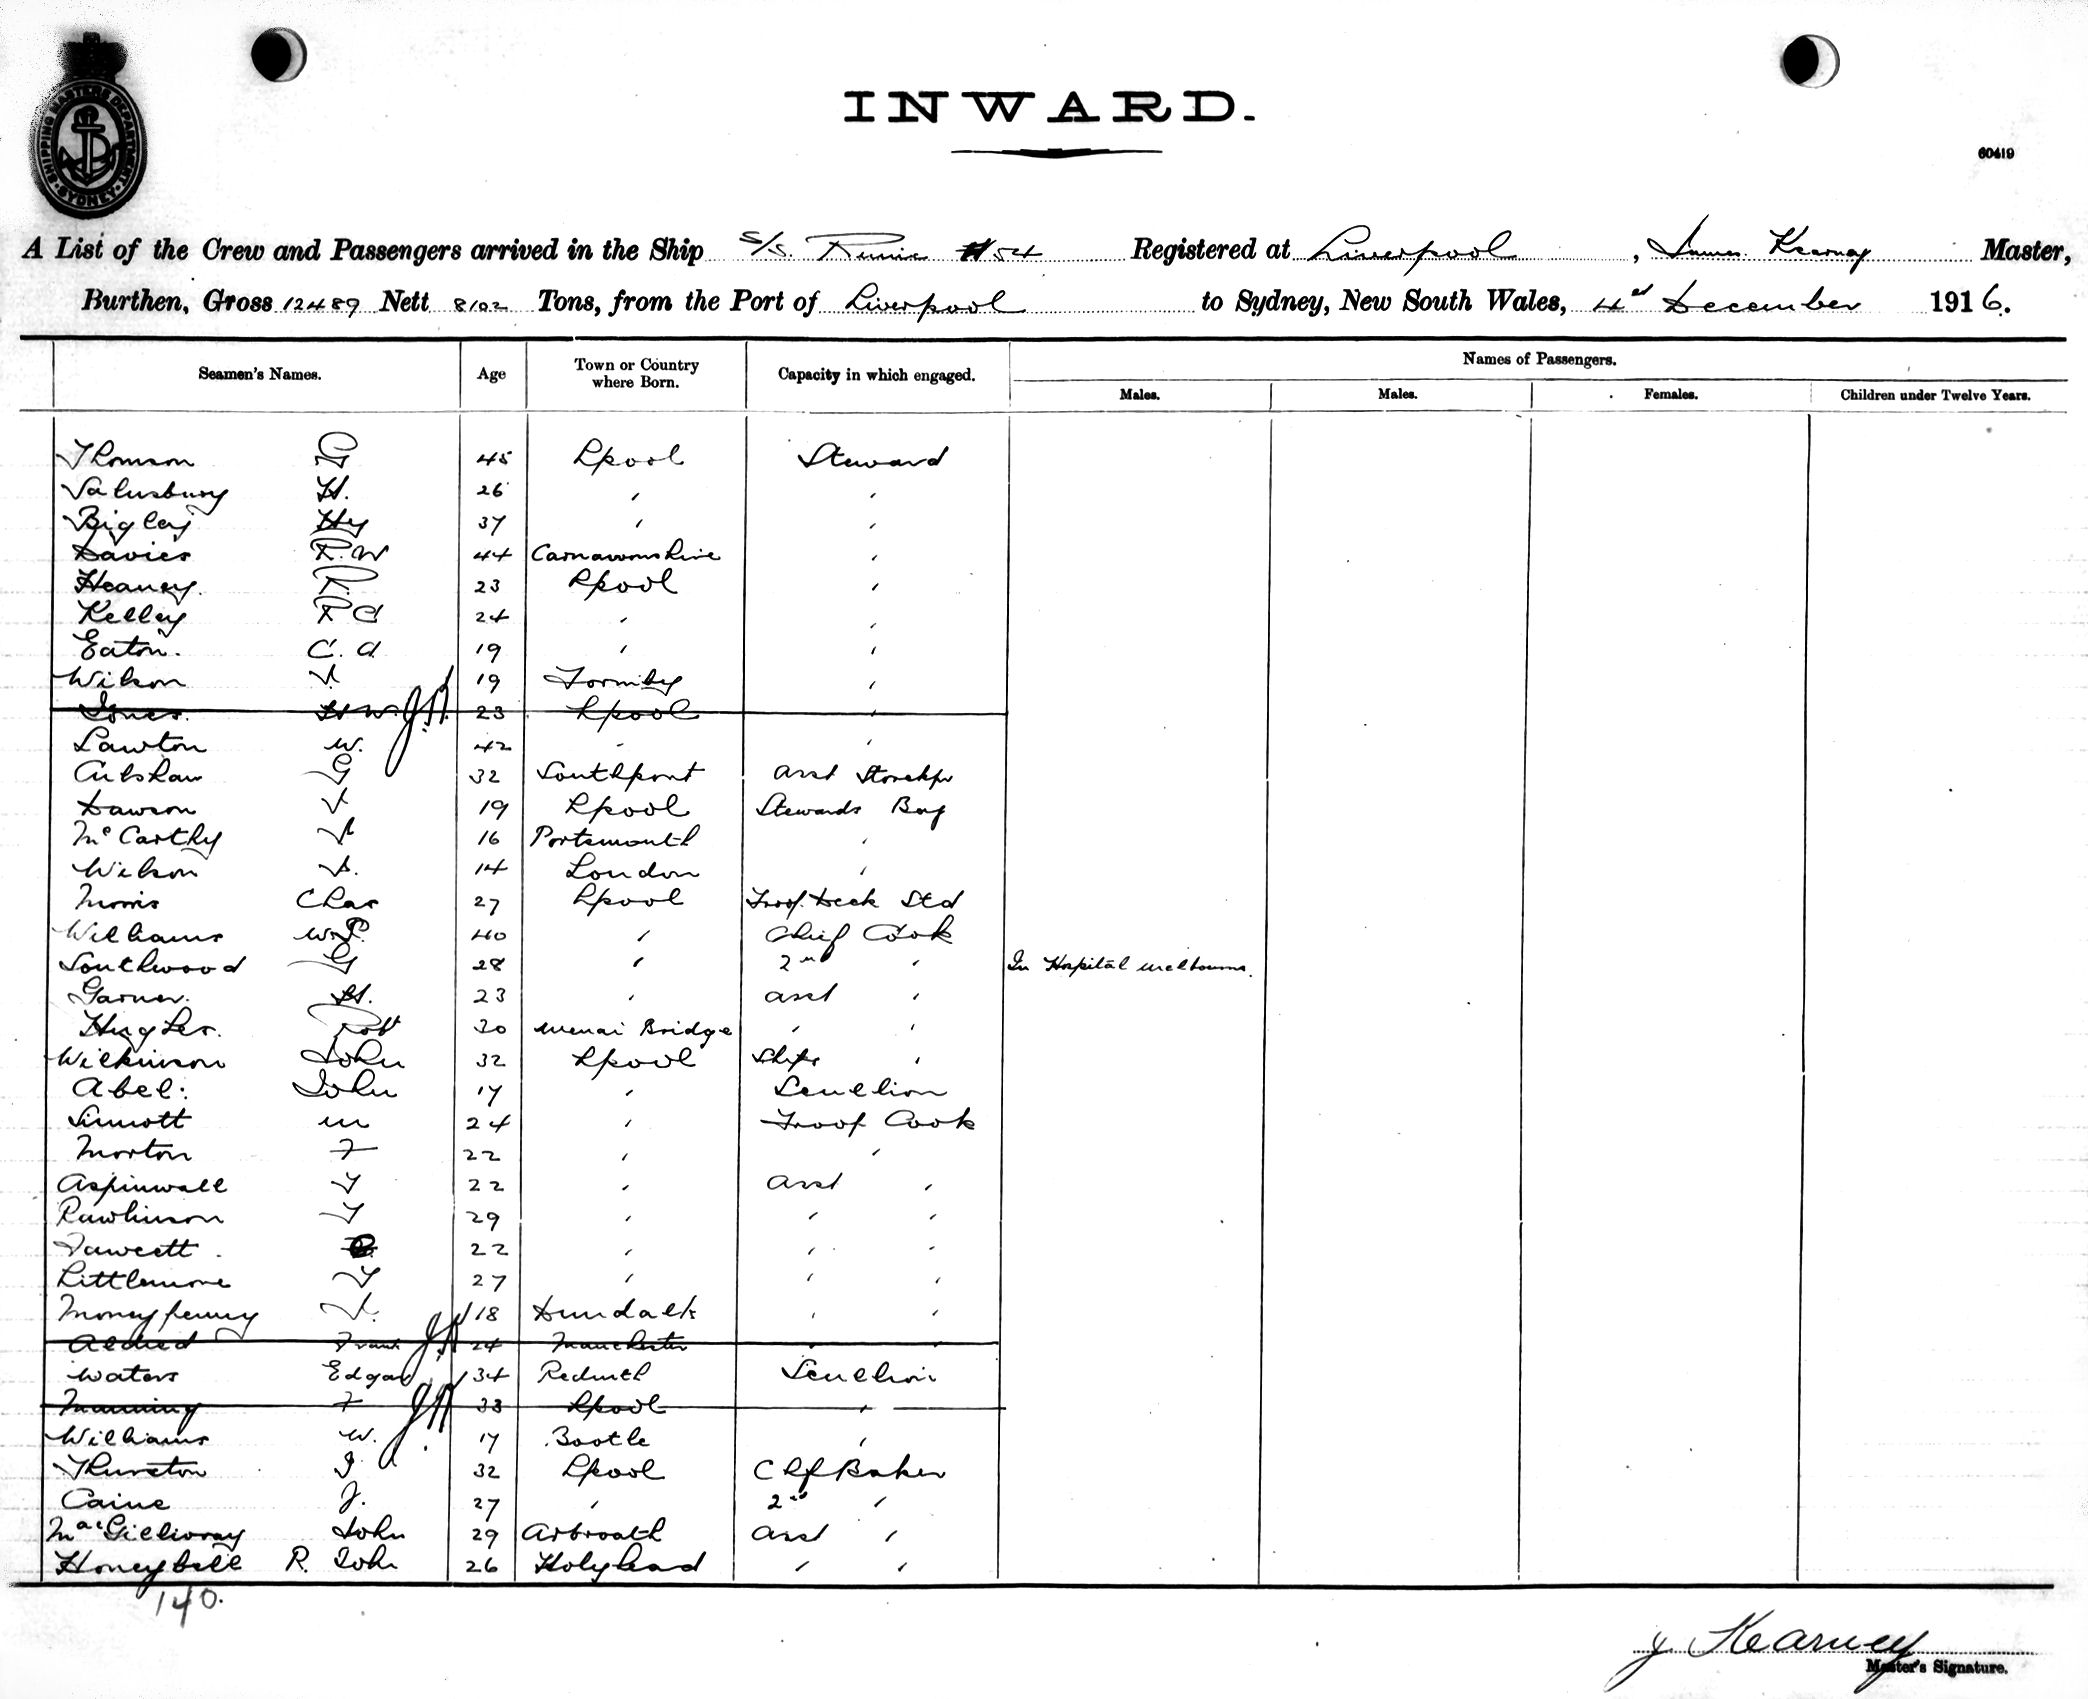 SHIPPING MASTERS DEPARTMENT · SYDNEY ·
INWARD.
60419
A List of the Crew and Passengers arrived in the Ship S/S. Runic 54 Registered at Liverpool, James Kearney Master,
Burthen, Gross 12489 Nett 8102 Tons, from the Port of Liverpool to Sydney, New South Wales, 4th December 1916.
Seamen's Names. Age Town or Country where Born. Capacity in which engaged. Names of Passengers.
Males. Males. Females. Children under Twelve Years.
Thomson G 45 Lpool Steward
Salusbury H. 26 " "
Bigley Hy 37 " "
Davies R. W 44 Carnarvonshire "
Heaney. R. 23 Lpool "
Kelley R C 24 " "
Eaton. C. A 19 " "
Wilson 19 Formby "
Jones. H W. 23 Lpool "
Lawton W. 42 " "
Culshaw G 32 Southport Asst Storekpr
Dawson J 19 Lpool Stewards Boy
McCarthy 16 Portsmouth "
Wilson 14 London "
Morris Chas 27 Lpool Troop Deck Std
Williams W. P. 40 " Chief Cook
Southwood G 28 " 2nd " In Hospital Melbourne.
Garner. H. 23 " Asst "
Hughes. Robt 30 Menai Bridge " "
Wilkinson John 32 Lpool Ships "
Abel: John 17 " Scullion
Sinnott M 24 " Troop Cook
Morton F 22 " "
Aspinwall T 22 " Asst "
Rawlinson T 29 " " "
Fawcett. 22 " " "
Littlemore T 27 " " "
Moneypenny J. 18 Dundalk " "
Aldred Frank 24 Manchester " "
Waters Edgar 34 Redruth Scullion
Manning F 33 Lpool "
Williams W. 17 Bootle "
Thurston J 32 Lpool Chf Baker
Caine J. 27 " 2nd "
MacGillivray John 29 Arbroath Asst "
Honeybill R. John 26 Holyhead " "
140.
J Kearney
Master's Signature.